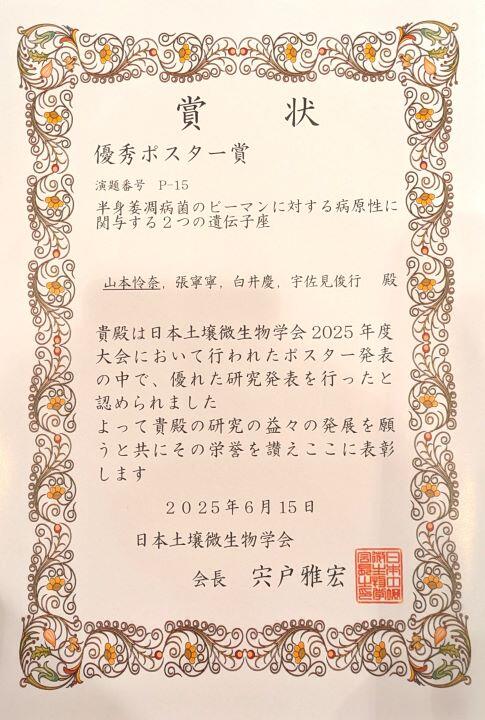 賞 状
優秀ポスター賞
演題番号 P-15
半身萎凋病菌のピーマンに対する病原性に
関与する２つの遺伝子座
山本怜奈, 張寧寧, 白井慶, 宇佐見俊行 殿
貴殿は日本土壌微生物学会 2025 年度
大会において行われたポスター発表
の中で、優れた研究発表を行ったと
認められました
よって貴殿の研究の益々の発展を願
うと共にその栄誉を讃えここに表彰
します
２０２５年６月１５日
日本土壌微生物学会
会長 宍戸雅宏